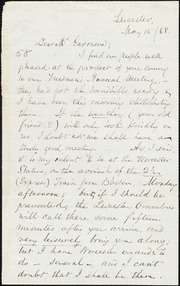 Leicester,
May 15/68.
Dear Mr. Garrison;
58 I find our people well
pleased at the prospect of your coming
to our Freedmen's Annual Meeting. They
had got out the handbills ready &
I have been this morning distributing
them. If the weather (your
old friend!!) will only look smiling on
us, I doubt not we shall have a
truly good meeting. As I said
it is my intent to be at the Worcester
Station, on the arrival of the 2½
Express train from Boston Monday
afternoon; but if I should be
prevented, the Leicester Omnibus
will call there some fifteen
minutes after you arrive, and
very leisurely bring you along.
But I have Worcester errands to
do — several — and I can't
doubt that I shall be there.